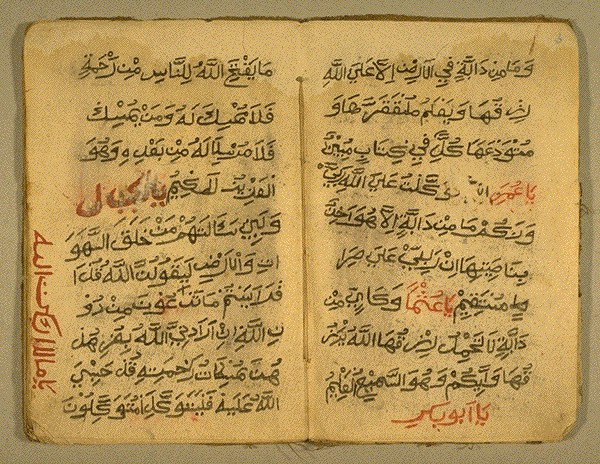 وَمَا مِن دَابَّةٍ فِي الْأَرْضِ إِلَّا عَلَى اللَّهِ
رزقها ويعلم مستقرها و
مستودعها كل في كتاب مبين
يا عمر توكلت على الله ربي
وربكم ما من دابة إلا هو اخذ
بناصيتها ان ربي على صرا
ط مستقيم يا عثما وكاين من
دابة لا تحمل رزقها الله يرز
قها واياكم وهو السميع العليم
يا ابو بكر
ما يفتح الله للناس من رحمة
فلا ممسك له ومن يمسك
فلا مرسل له من بعده وهو
العزيز الحكيم
ولين سالتهم من خلق السمو
ات والارض ليقولن الله قل ا
ما تدعون من دو
ن الله ان ارادني الله بضر هل
هن ممسكات رحمته قل حسبي
الله عليه المتوكلون